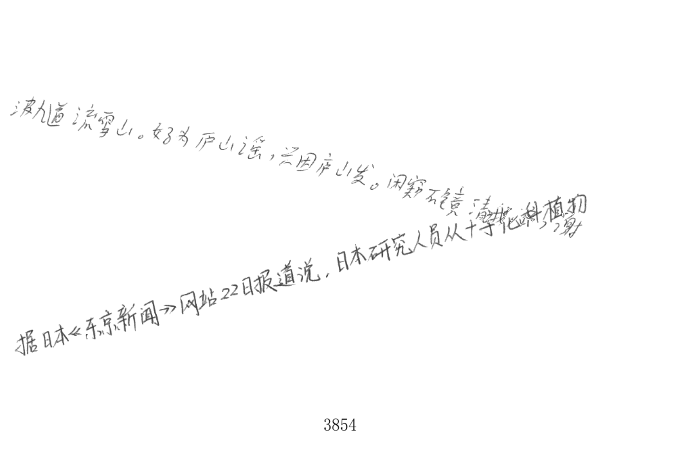 波九道流雪山。好为庐山谣,兴因庐山发。闲窥石镜清
据日本《东京新闻》网站22日报道说,日本研究人员从十字花科植物
3854